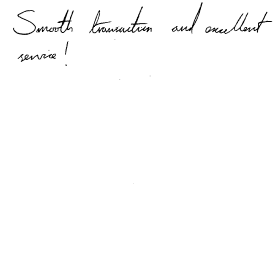 Smooth transaction and excellent
service!